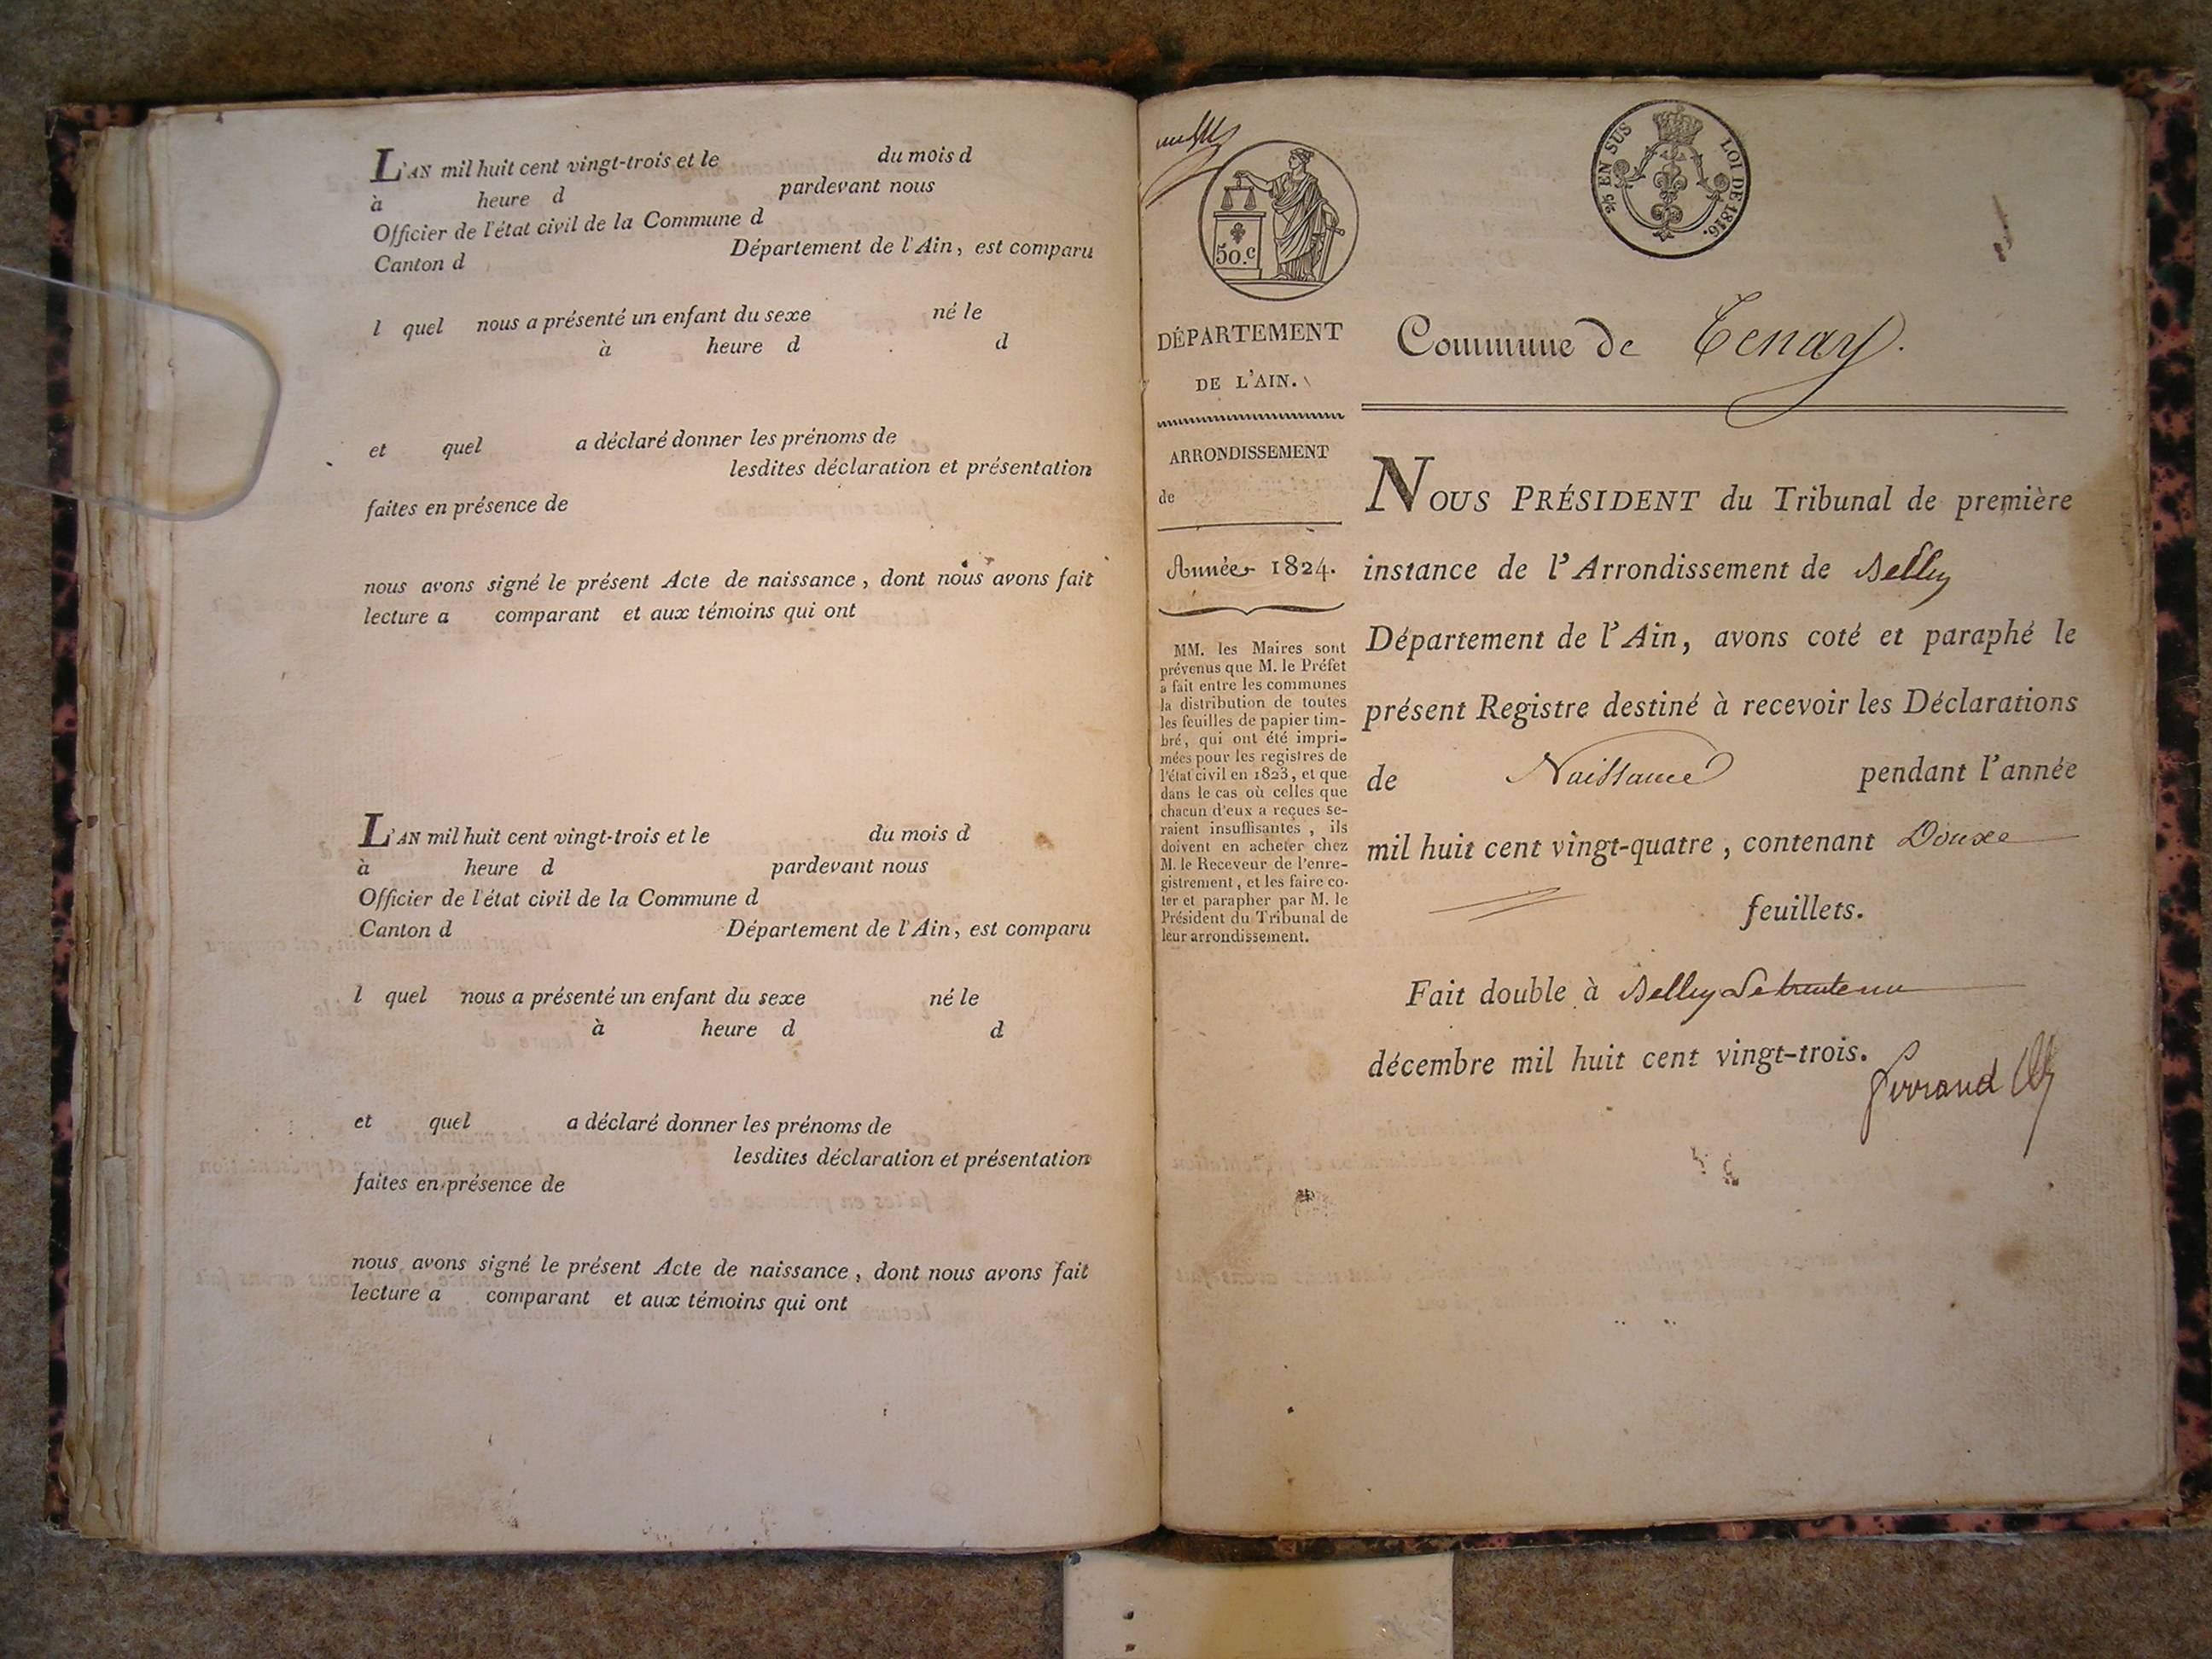 L'AN mil huit cent vingt-trois et le du mois d
à heure d pardevant nous
Officier de l'état civil de la Commune d
Canton d Département de l'Ain, est comparu
l quel nous a présenté un enfant du sexe né le
à heure d d
et quel a déclaré donner les prénoms de
lesdites déclaration et présentation
faites en présence de
nous avons signé le présent Acte de naissance, dont nous avons fait
lecture a comparant et aux témoins qui ont
L'AN mil huit cent vingt-trois et le du mois d
à heure d pardevant nous
Officier de l'état civil de la Commune d
Canton d Département de l'Ain, est comparu
l quel nous a présenté un enfant du sexe né le
à heure d d
et quel a déclaré donner les prénoms de
lesdites déclaration et présentation
faites en présence de
nous avons signé le présent Acte de naissance, dont nous avons fait
lecture a comparant et aux témoins qui ont
50.c
EN SUS LOI DE 1816.
DÉPARTEMENT
DE L'AIN.
ARRONDISSEMENT
de
Année 1824.
MM. les Maires sont
prévenus que M. le Préfet
a fait entre les communes
la distribution de toutes
les feuilles de papier tim-
bré, qui ont été impri-
mées pour les registres de
l'état civil en 1823, et que
dans le cas où celles que
chacun d'eux a reçues se-
raient insuffisantes, ils
doivent en acheter chez
M. le Receveur de l'enre-
gistrement, et les faire co-
ter et parapher par M. le
Président du Tribunal de
leur arrondissement.
Commune de Tenay.
NOUS PRÉSIDENT du Tribunal de première
instance de l'Arrondissement de Belley
Département de l'Ain, avons coté et paraphé le
présent Registre destiné à recevoir les Déclarations
de Naissance pendant l'année
mil huit cent vingt-quatre, contenant Douze
feuillets.
Fait double à Belley le trente un
décembre mil huit cent vingt-trois.